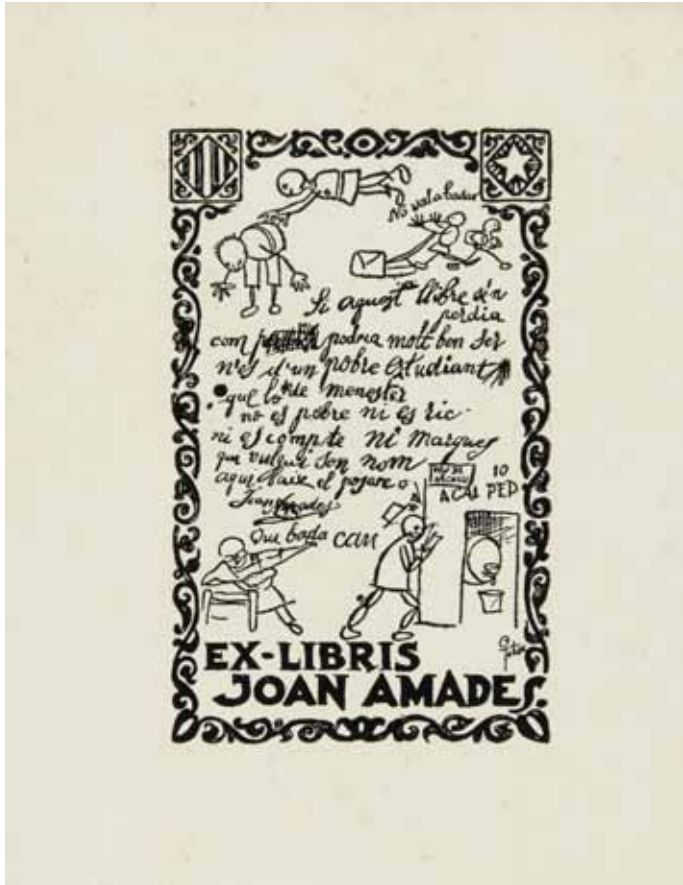 No val a badar
Si aquest llibre s'en
perdia
com podria molt ben ser
n'es d'un pobre estudiant
que lo n'de menester
no es pobre ni es ric
ni es compte ni marques
que vulgui son nom
aqui baix el posare
Joan Amades
Qui bada cau
10
ACAU PED
EX-LIBRIS
JOAN AMADES.